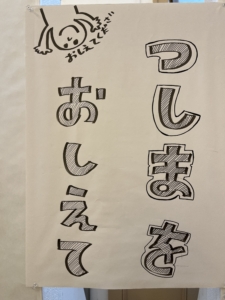 つしまを
おしえて
おしえてください